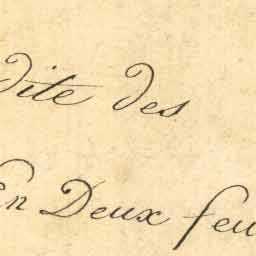 dite des
En Deux feu